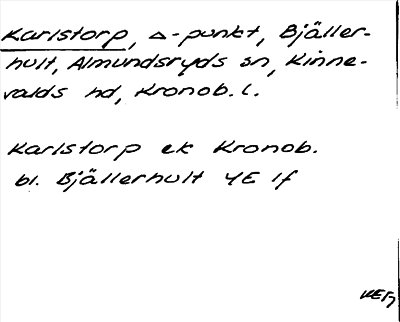 Karlstorp, △-punkt, Bjäller-
hult, Almundsryds sn, Kinne-
valds hd, Kronob. l.
Karlstorp ek Kronob.
bl. Bjällerhult 4E 1f